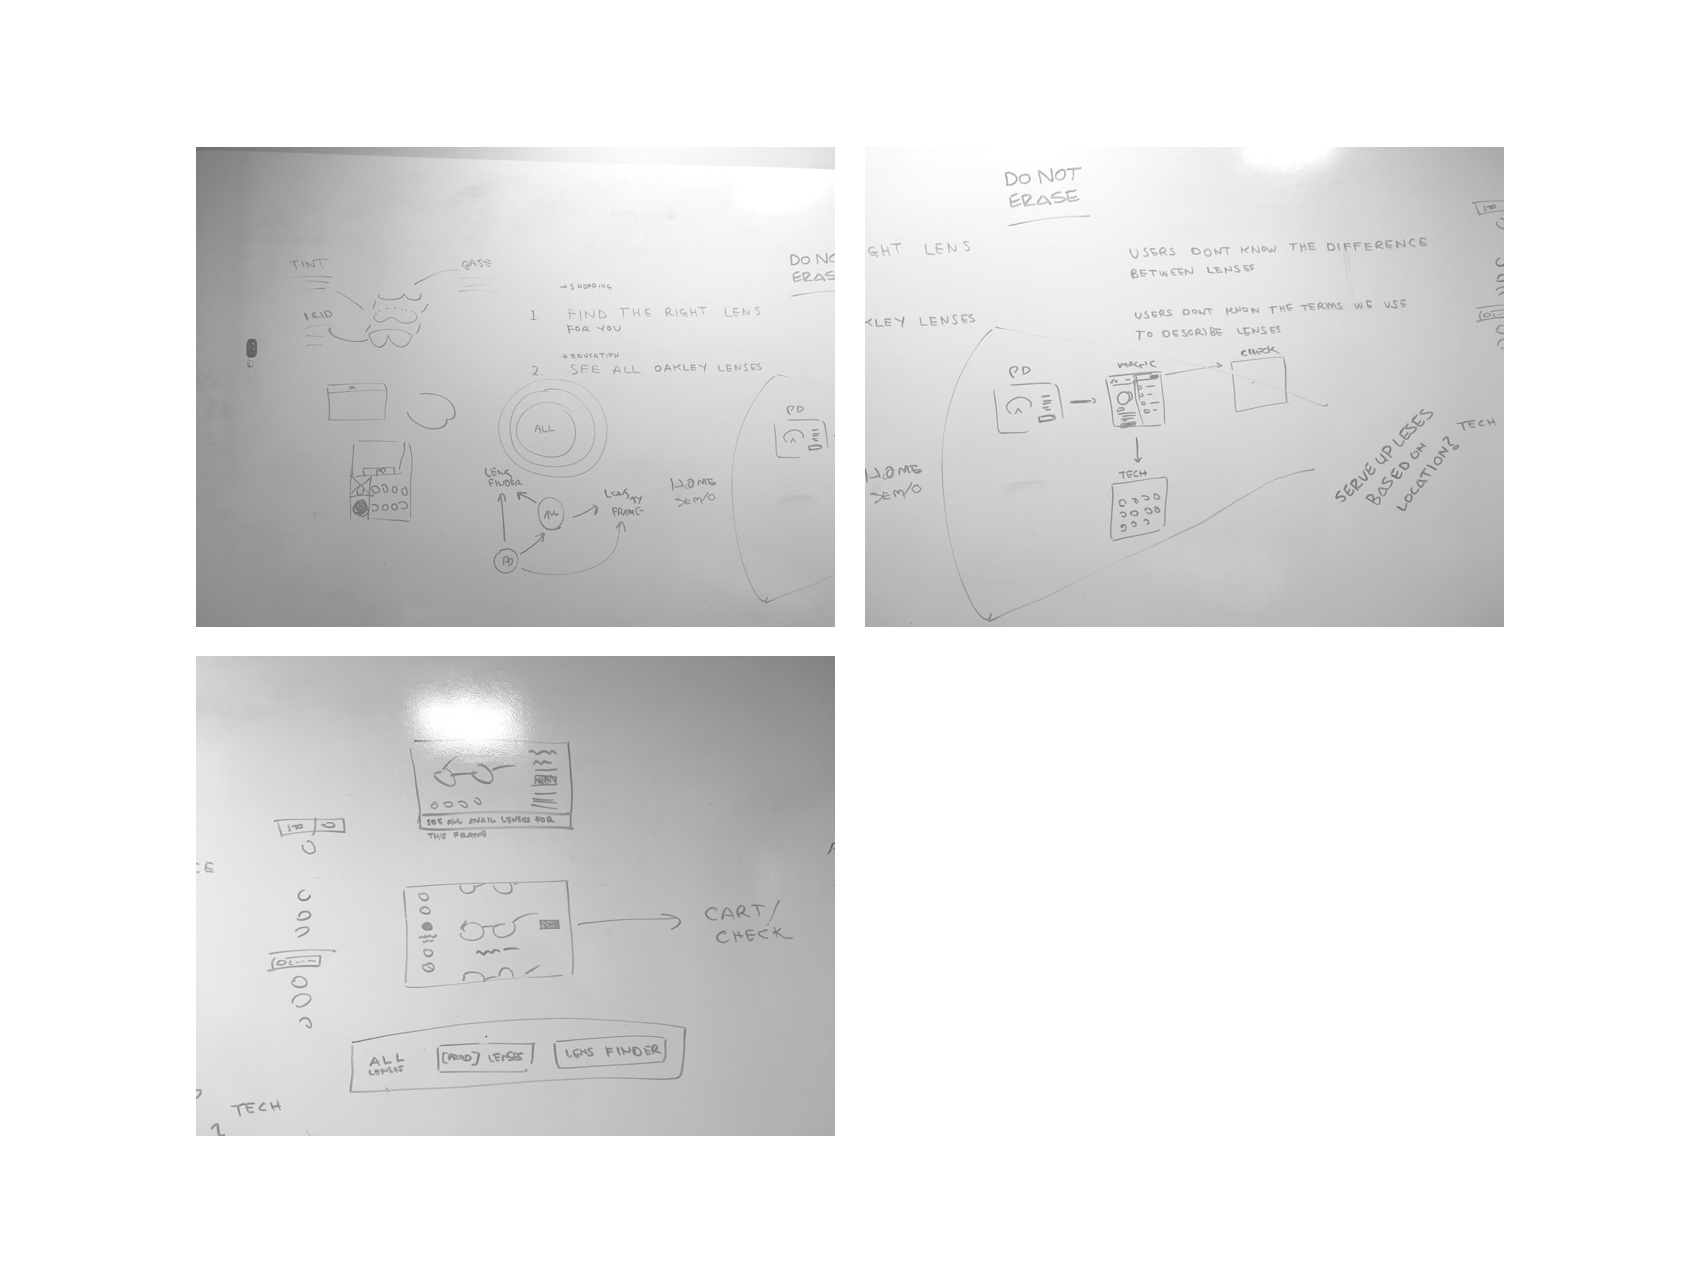 TINT
BASE
IRID
→ SHOPPING
1. FIND THE RIGHT LENS
FOR YOU
→ EDUCATION
2. SEE ALL OAKLEY LENSES
ALL
LENS
FINDER
ALL
LENS
BY
FRAME
PD
HOME
SEM/O
DO NO
ERAS
PD
DO NOT
ERASE
GHT LENS
KLEY LENSES
USERS DONT KNOW THE DIFFERENCE
BETWEEN LENSES
USERS DONT KNOW THE TERMS WE USE
TO DESCRIBE LENSES
PD
MAGIC
CHECK
TECH
HOME
SEM/O
SERVE UP LESES
BASED ON
LOCATION?
TECH
SEE ALL AVAIL LENSES FOR
THIS FRAME
CE
CART/
CHECK
ALL
LENSES
[PROD] LENSES
LENS FINDER
TECH